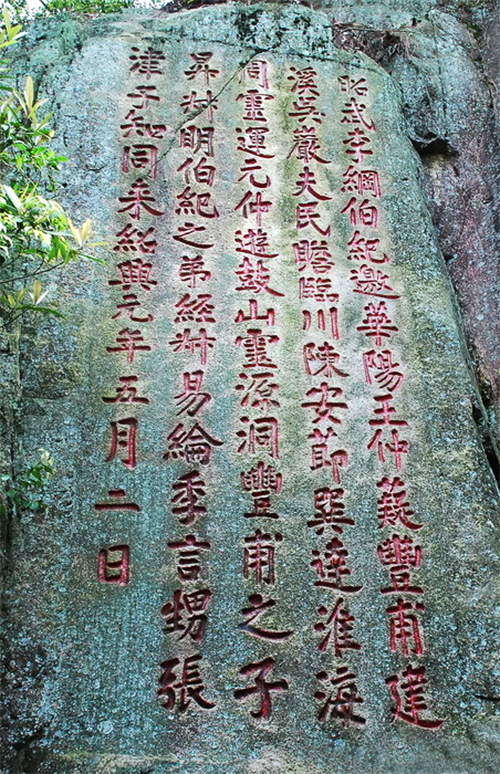 昭武李綱伯紀邀華陽王仲薿豐甫建
溪吳巖夫民瞻臨川陳安節巽達淮海
周靈運元仲遊鼓山靈源洞豐甫之子
昇叔明伯紀之弟經叔易綸季言甥張
津子知同来紹興元年五月二日